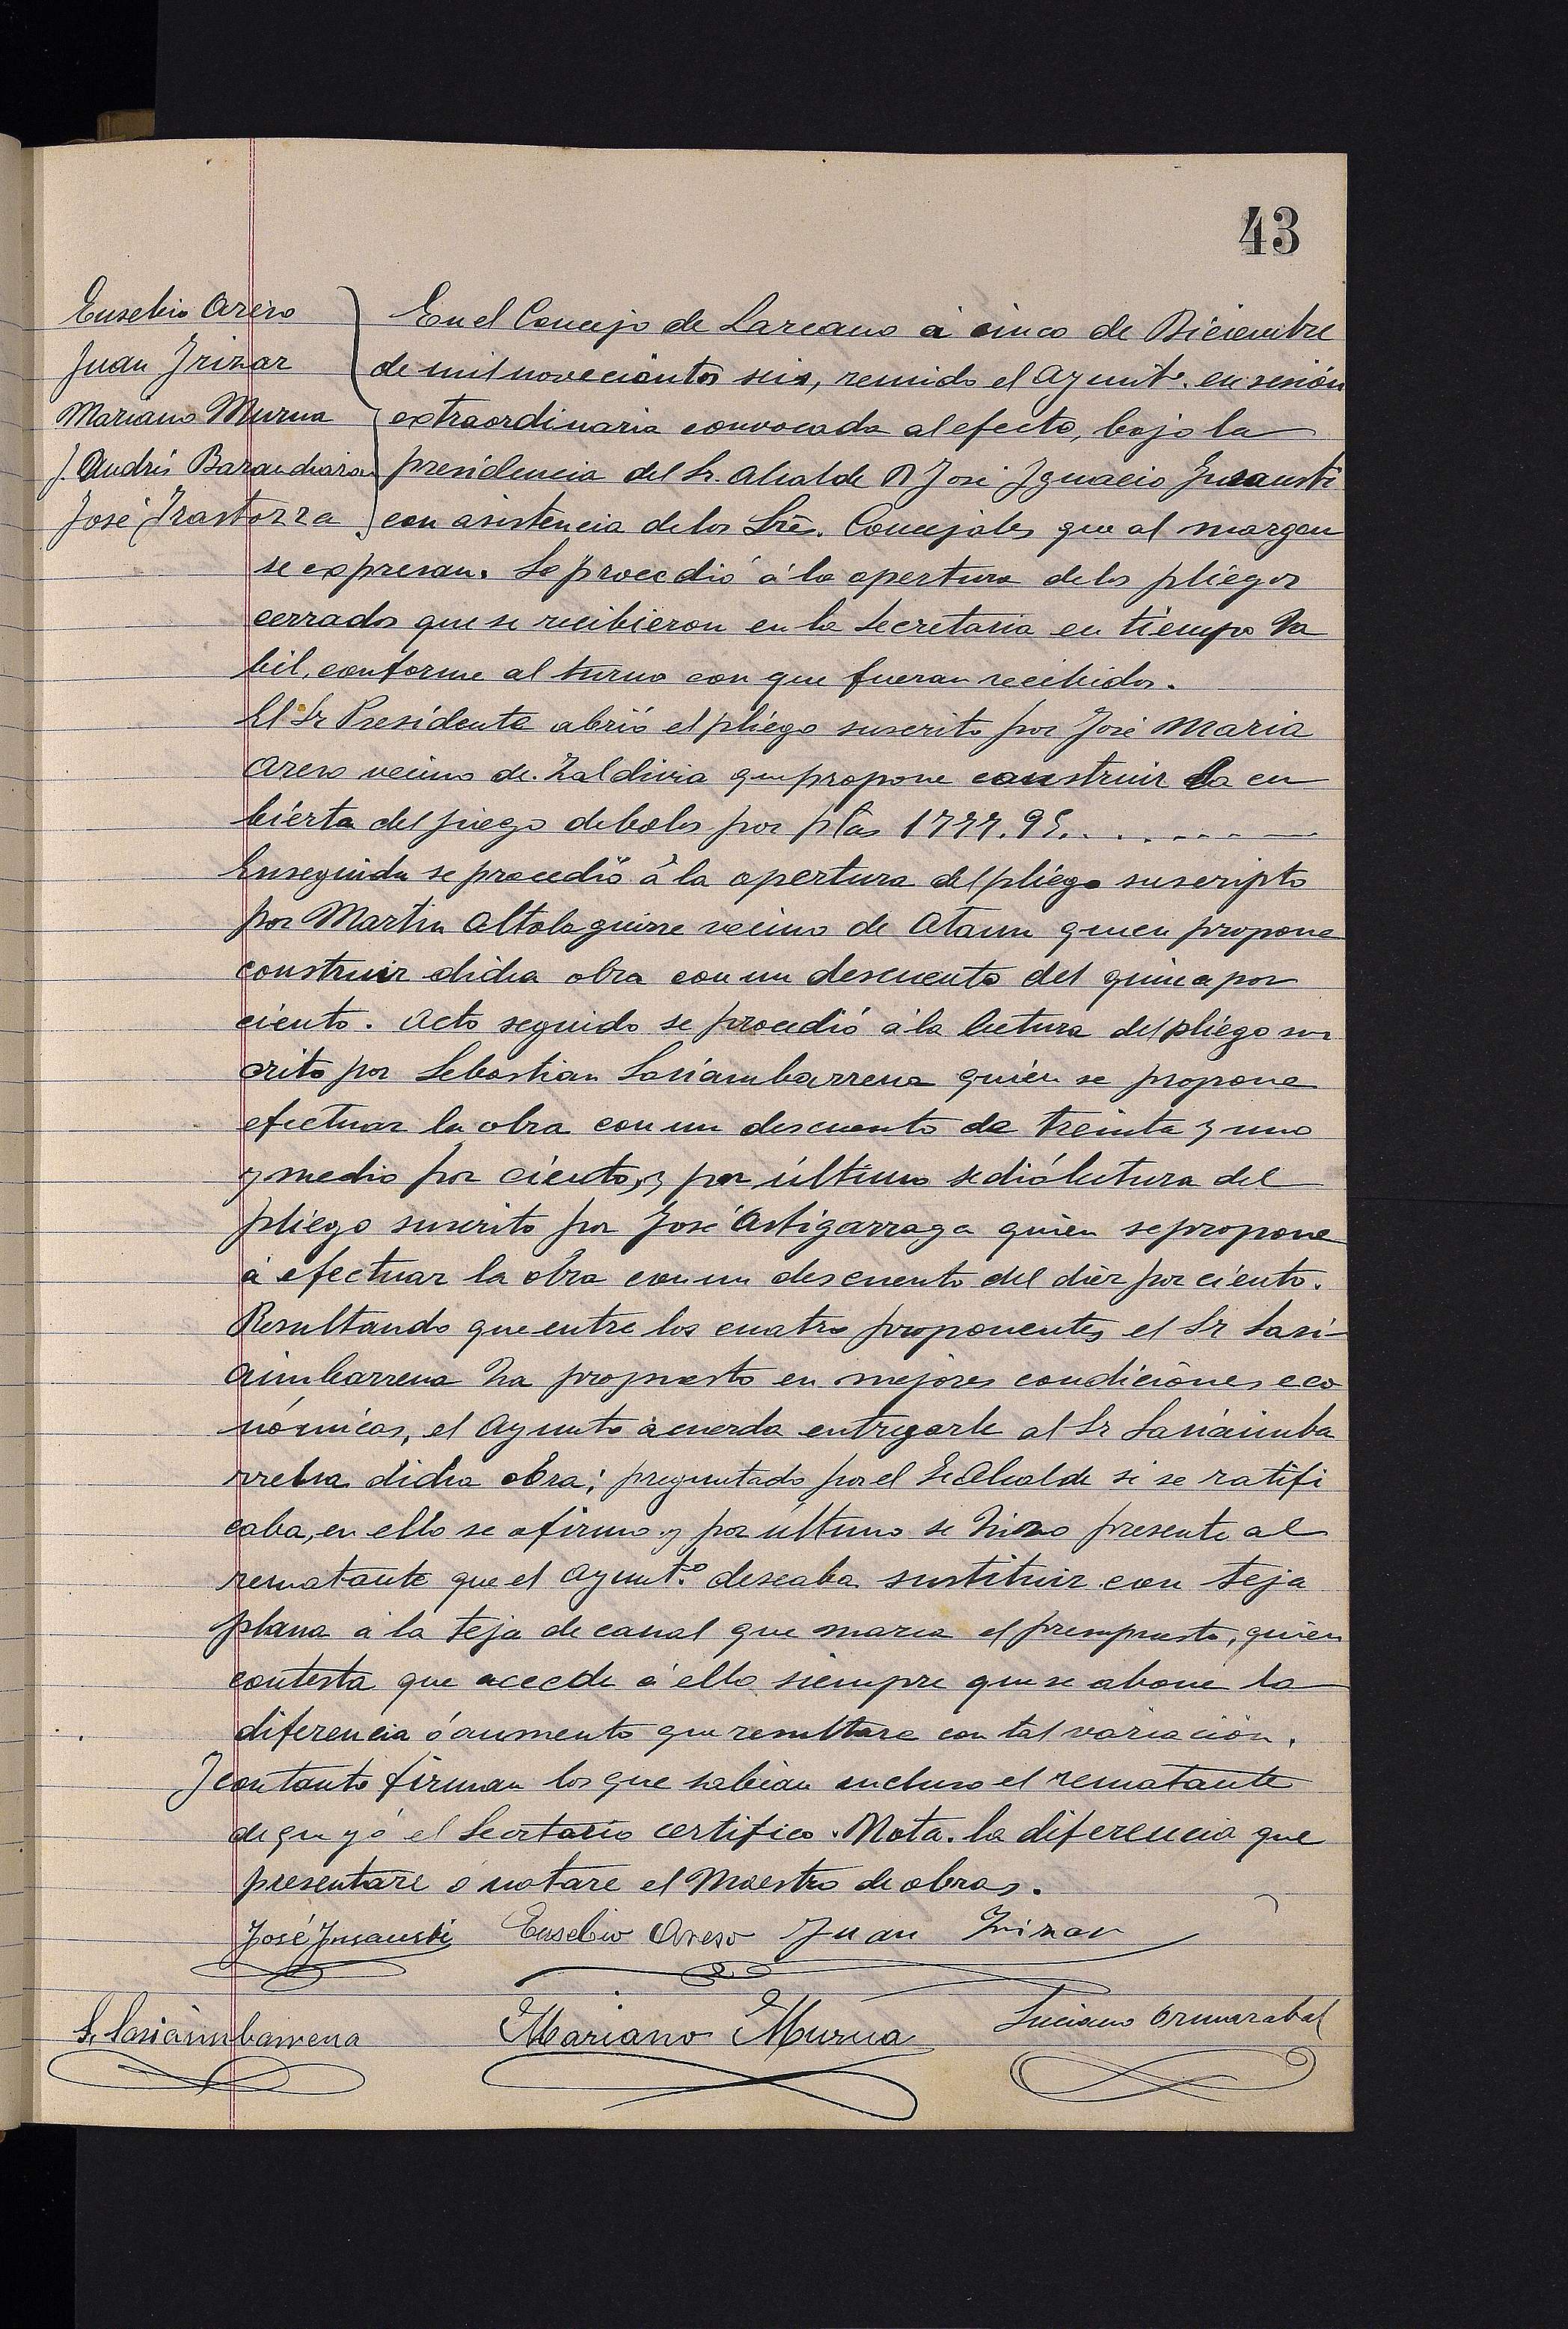 43
Eusebio Areso
Juan Irizar
Mariano Murua
J. Andrés Barandiaran
José Irastorza
En el Concejo de Lazcano á cinco de Diciembre
de mil novecientos seis, reunido el Ayuntº. en sesión
extraordinaria convocada al efecto, bajo la
presidencia del Sr. Alcalde D José Ignacio Insausti
con asistencia de los Sres. Concejales que al margen
se expresan. Se procedió á la apertura de los pliegos
cerrados que se recibieron en la Secretaria en tiempo ha
bil, conforme al turno con que fueran recibidos.
El Sr Presidente abrió el pliego suscrito por José Maria
Areso vecino de Zaldivia que propone construir la cu
bierta del juego de bolos por ptas
Enseguida se procedió á la apertura del pliego suscripto
por Martin Altolaguirre vecino de Ataun quien propone
construir dicha obra con un descuento del quince por
ciento. Acto seguido se procedió á la lectura del pliego sus
crito por Sebastian Sasiambarrena quien se propone
efectuar la obra con un descuento de treinta y uno
y medio por ciento, y por último se dió lectura del
pliego suscrito por José Astigarraga quien se propone
á efectuar la obra con un descuento del diez por ciento.
Resultando que entre los cuatro proponentes el Sr Sasi-
aimbarrena ha propuesto en mejores condiciones eco
nómicas, el Ayuntº acuerda entregarle al Sr Sasiaimba
rrena dicha obra; preguntado por el Sr Alcalde si se ratifi
caba, en ello se afirmo y por último se hizo presente al
rematante que el Ayuntº. deseaba sustituir con teja
plana á la teja de canal que marca el presupuesto, quien
contesta que accede á ello siempre que se abone la
diferencia ó aumento que resultare con tal variación.
Y con tanto firman los que sabian incluso el rematante
de que yó el Secretario certifico. Nota. la diferencia que
presentare ó notare el Maestro de obras.
José Insausti Eusebio Areso Juan Irizar
S. Sasiaimbarrena Mariano Murua Luciano